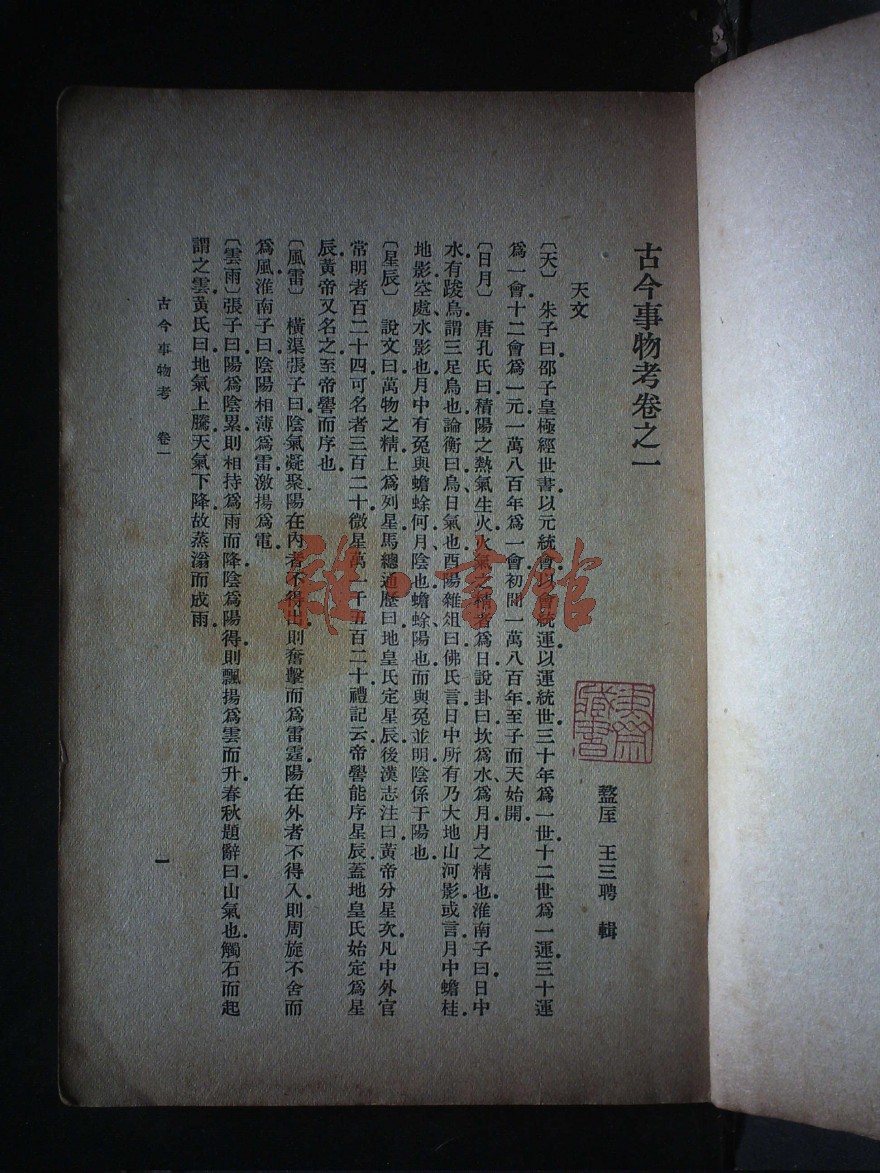 古今事物考卷之一
盩厔 王三聘 輯
天文
〔天〕 朱子曰邵子皇極經世書以元統會以會統運以運統世三十年爲一世十二世爲一運三十運
爲一會十二會爲一元一萬八百年爲一會初間一萬八百年至子而天始開
〔日月〕 唐孔氏曰積陽之熱氣生火火氣之精者爲日說卦曰坎爲水爲月月之精也淮南子曰日中
水有踆烏謂三足烏也論衡曰烏日氣也酉陽雜俎曰佛氏言日中所有乃大地山河影或言月中蟾桂
地影空處水影也月中有兔與蟾蜍何月陰也蟾蜍陽也而與兔並明陰係于陽也
〔星辰〕 說文曰萬物之精上爲列星馬總通歷曰地皇氏定星辰後漢志注曰黃帝分星次凡中外官
常明者百二十四可名者三百二十微星萬一千五百二十禮記云帝嚳能序星辰蓋地皇氏始定爲星
辰黃帝又名之至帝嚳而序也
〔風雷〕 橫渠張子曰陰氣凝聚陽在內者不得出則奮擊而爲雷霆陽在外者不得入則周旋不舍而
爲風淮南子曰陰陽相薄爲雷激揚爲電
〔雲雨〕張子曰陽爲陰累則相持爲雨而降陰爲陽得則飄揚爲雲而升春秋題辭曰山氣也觸石而起
謂之雲黃氏曰地氣上騰天氣下降故蒸滃而成雨
古今事物考 卷一
一
雅書館